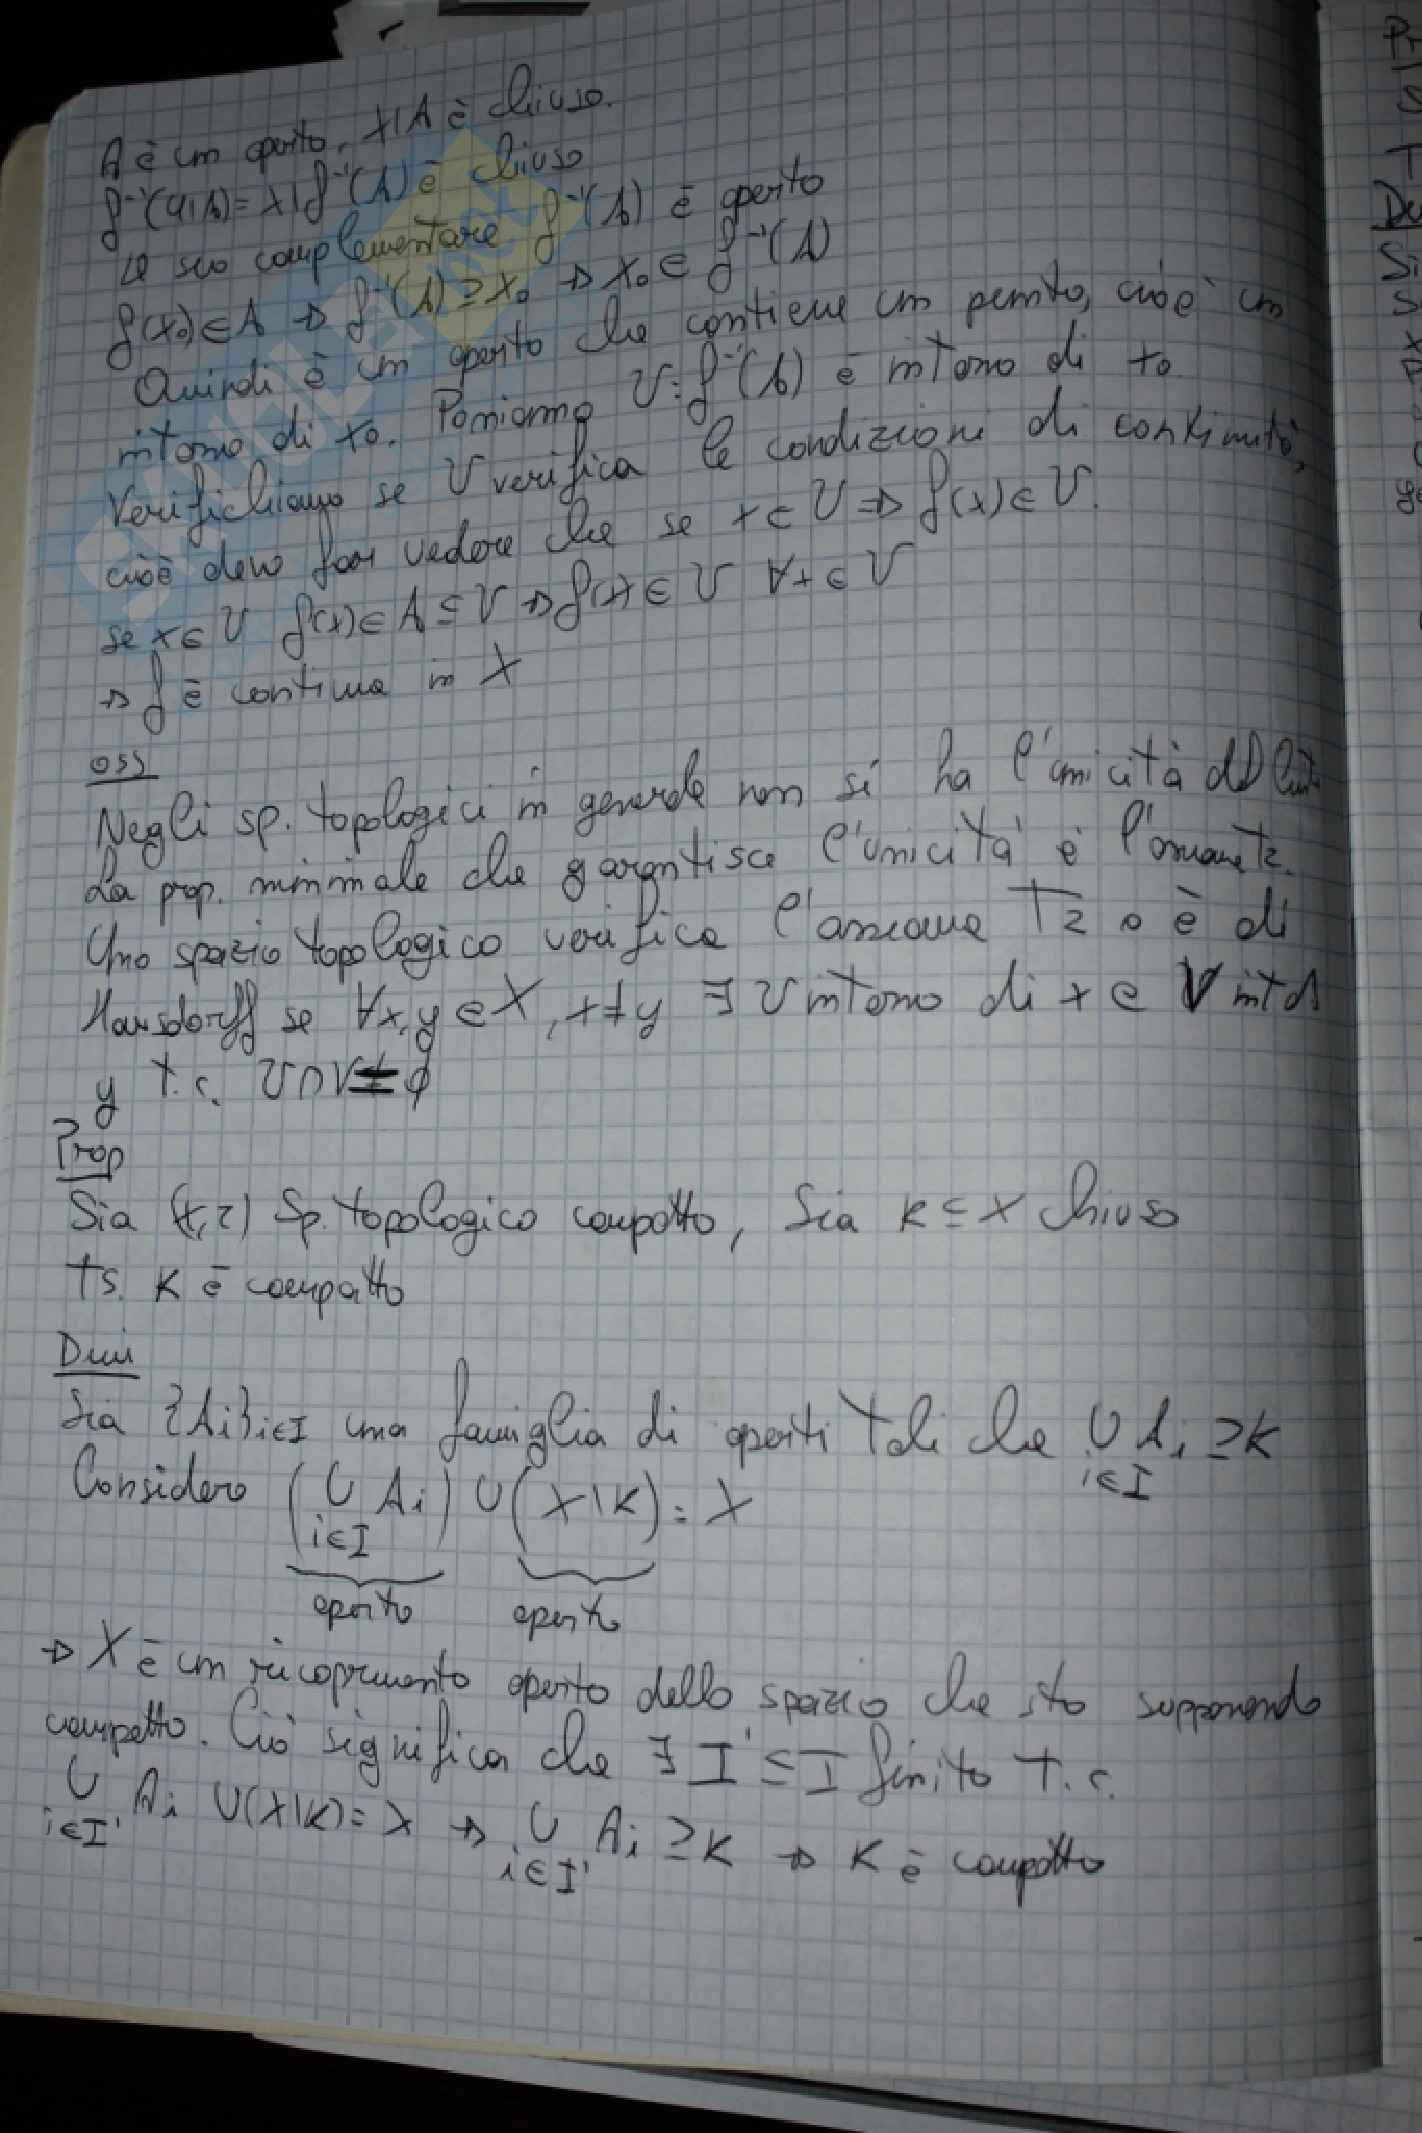 A è un aperto, X\A è chiuso.
f⁻¹(Y\A) = X\f⁻¹(A) è chiuso
Il suo complementare f⁻¹(A) è aperto
f(x₀) ∈ A ⇒ f⁻¹(A) ∋ x₀ ⇒ x₀ ∈ f⁻¹(A)
Quindi è un aperto che contiene un punto, cioè un
intorno di x₀. Poniamo U = f⁻¹(A) è intorno di x₀.
Verifichiamo se U verifica le condizioni di continuità,
cioè devo far vedere che se x ∈ U ⇒ f(x) ∈ V.
se x ∈ U f(x) ∈ A ⊆ V ⇒ f(x) ∈ V ∀x ∈ U
⇒ f è continua in X
OSS
Negli sp. topologici in generale non si ha l'unicità del lim.
La prop. minimale che garantisce l'unicità è
Uno spazio topologico verifica l'assioma T2 o è di
Hausdorff se ∀x,y ∈ X, x≠y ∃ U intorno di x e V int di
y t.c. U∩V = ∅
Prop
Sia (X,τ) sp. topologico compatto, Sia K ⊆ X chiuso
Ts. K è compatto
Dim
Sia {Ai}i∈I una famiglia di aperti tali che ∪ Ai ⊇ K
i∈I
Considero (∪ Ai) ∪ (X\K) = X
i∈I
aperto aperto
⇒ X è un ricoprimento aperto dello spazio che sto supponendo
compatto. Ciò significa che ∃ I' ⊆ I finito t.c.
∪ Ai ∪(X\K) = X ⇒ ∪ Ai ⊇ K ⇒ K è compatto
i∈I' i∈I'
SKUOLA.net